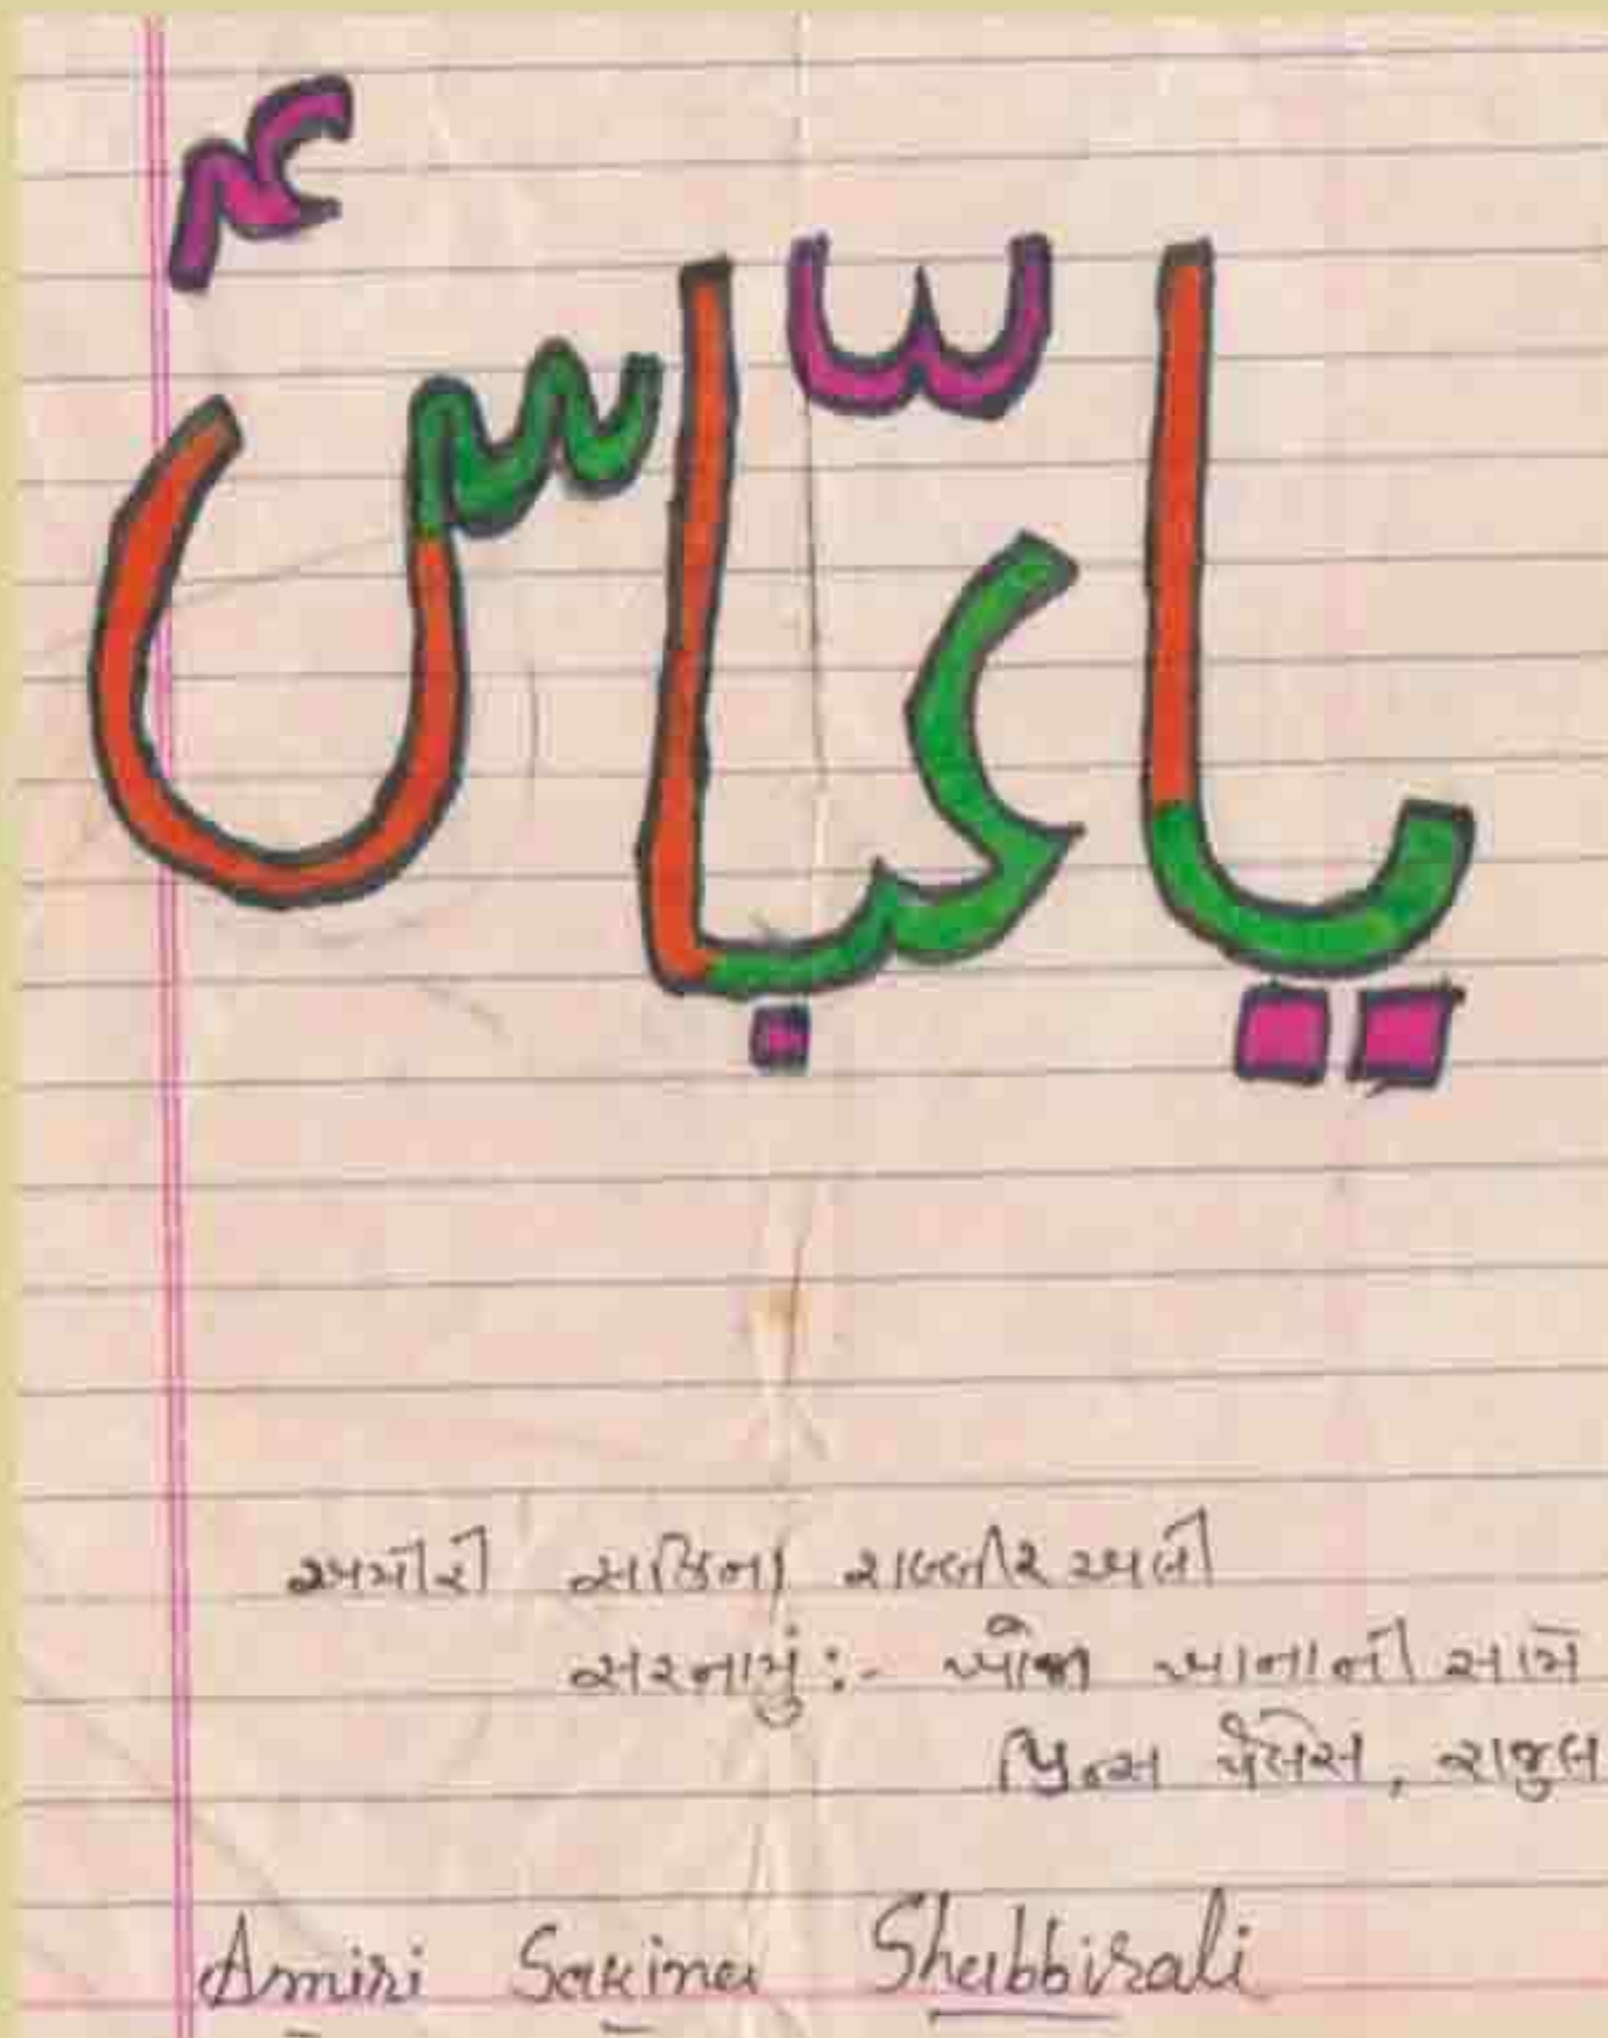 یا عبّاس ؑ
અમીરી સકિના શબ્બીરઅલી
સરનામું :- ખોજા ખાનાની સામે
પ્રિન્સ પેલેસ, રાજુલ
Amiri Sakina Shabbirali